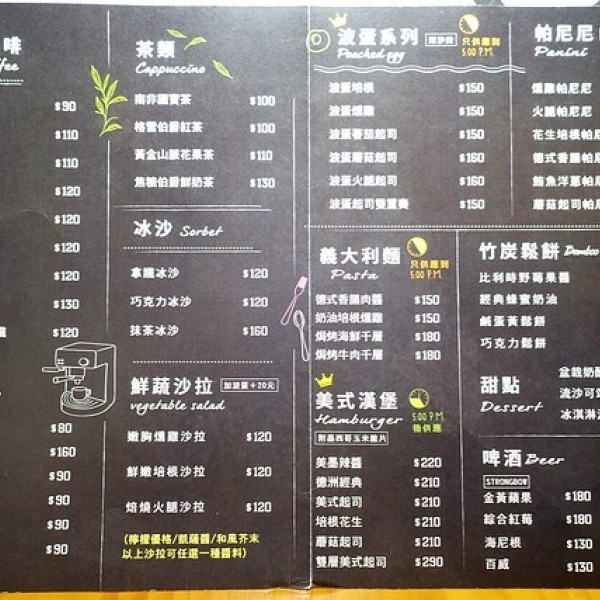 啡
ffee
$90
$110
$110
$120
$120
$120
$120
$130
$120
$80
$160
$90
$90
$90
$90
茶類
Cappuccino
南非國寶茶 $100
格雷伯爵紅茶 $100
黃金山脈花果茶 $110
焦糖伯爵鮮奶茶 $130
冰沙 Sorbet
拿鐵冰沙 $120
巧克力冰沙 $120
抹茶冰沙 $160
鮮蔬沙拉 加波蛋+20元
vegetable salad
嫩胸燻雞沙拉 $120
鮮嫩培根沙拉 $120
焙燒火腿沙拉 $120
(檸檬優格/凱薩醬/和風芥末
以上沙拉可任選一種醬料)
波蛋系列 附沙拉 只供應到
Poached egg 5:00 P.M.
波蛋培根 $150
波蛋燻雞 $150
波蛋蕃茄起司 $150
波蛋蘑菇起司 $160
波蛋火腿起司 $160
波蛋起司雙重奏 $160
義大利麵 只供應到
Pasta 5:00 P.M.
德式香腸肉醬 $150
奶油培根燻雞 $150
焗烤海鮮千層 $180
焗烤牛肉千層 $180
美式漢堡 5:00 P.M.
Hamburger 後供應
附墨西哥玉米脆片
美墨辣醬 $220
德洲經典 $210
美式起司 $210
培根花生 $210
蘑菇起司 $210
雙層美式起司 $290
帕尼尼
Panini
燻雞帕尼尼
火腿帕尼尼
花生培根帕尼
德式香腸帕尼
鮪魚洋蔥帕尼
蘑菇起司帕尼
竹炭鬆餅 Bamboo
比利時野莓果醬
經典蜂蜜奶油
鹹蛋黃鬆餅
巧克力鬆餅
甜點
Dessert
盆栽奶酪
流沙可
冰淇淋
啤酒 Beer
STRONGBOW
金黃蘋果 $180
綜合紅莓 $180
海尼根 $130
百威 $130